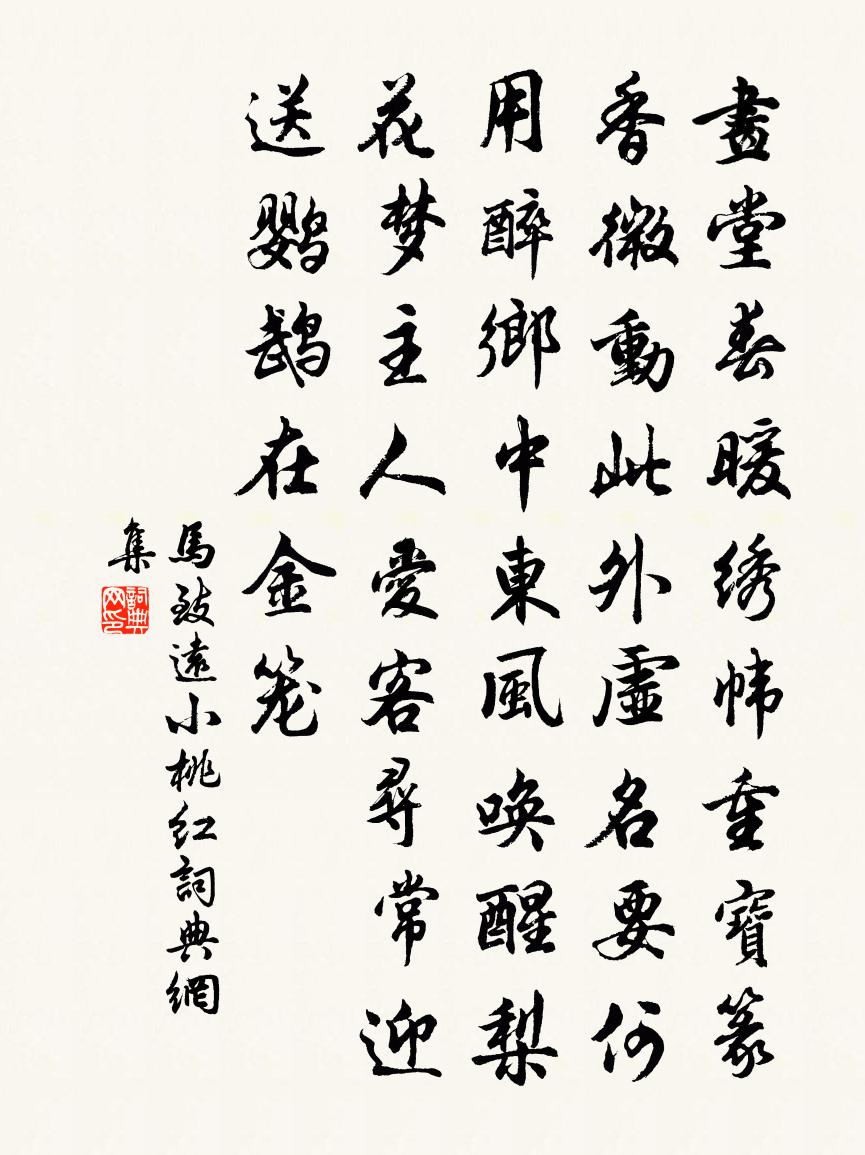 畫堂春暖绣帏重寶篆
香微動此外虛名要何
用醉鄉中東風喚醒梨
花梦主人愛客尋常迎
送鹦鹉在金笼
馬致遠小桃红詞典網
集
詞典网印